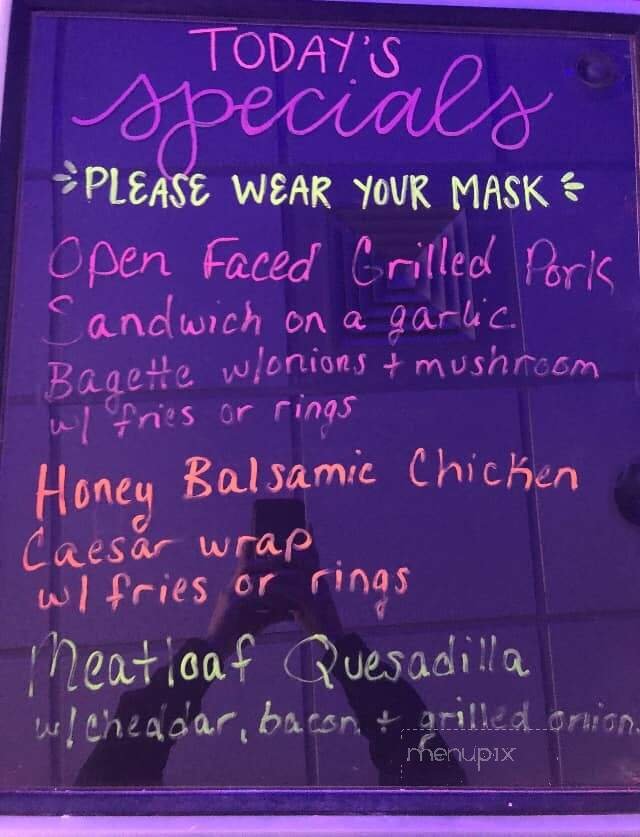 TODAY'S
specials
PLEASE WEAR YOUR MASK
Open Faced Grilled Pork
Sandwich on a garlic
Bagette w/onions + mushroom
w/ fries or rings
Honey Balsamic Chicken
Caesar wrap
w/ fries or rings
Meatloaf Quesadilla
w/cheddar, bacon + grilled onion.
menupix